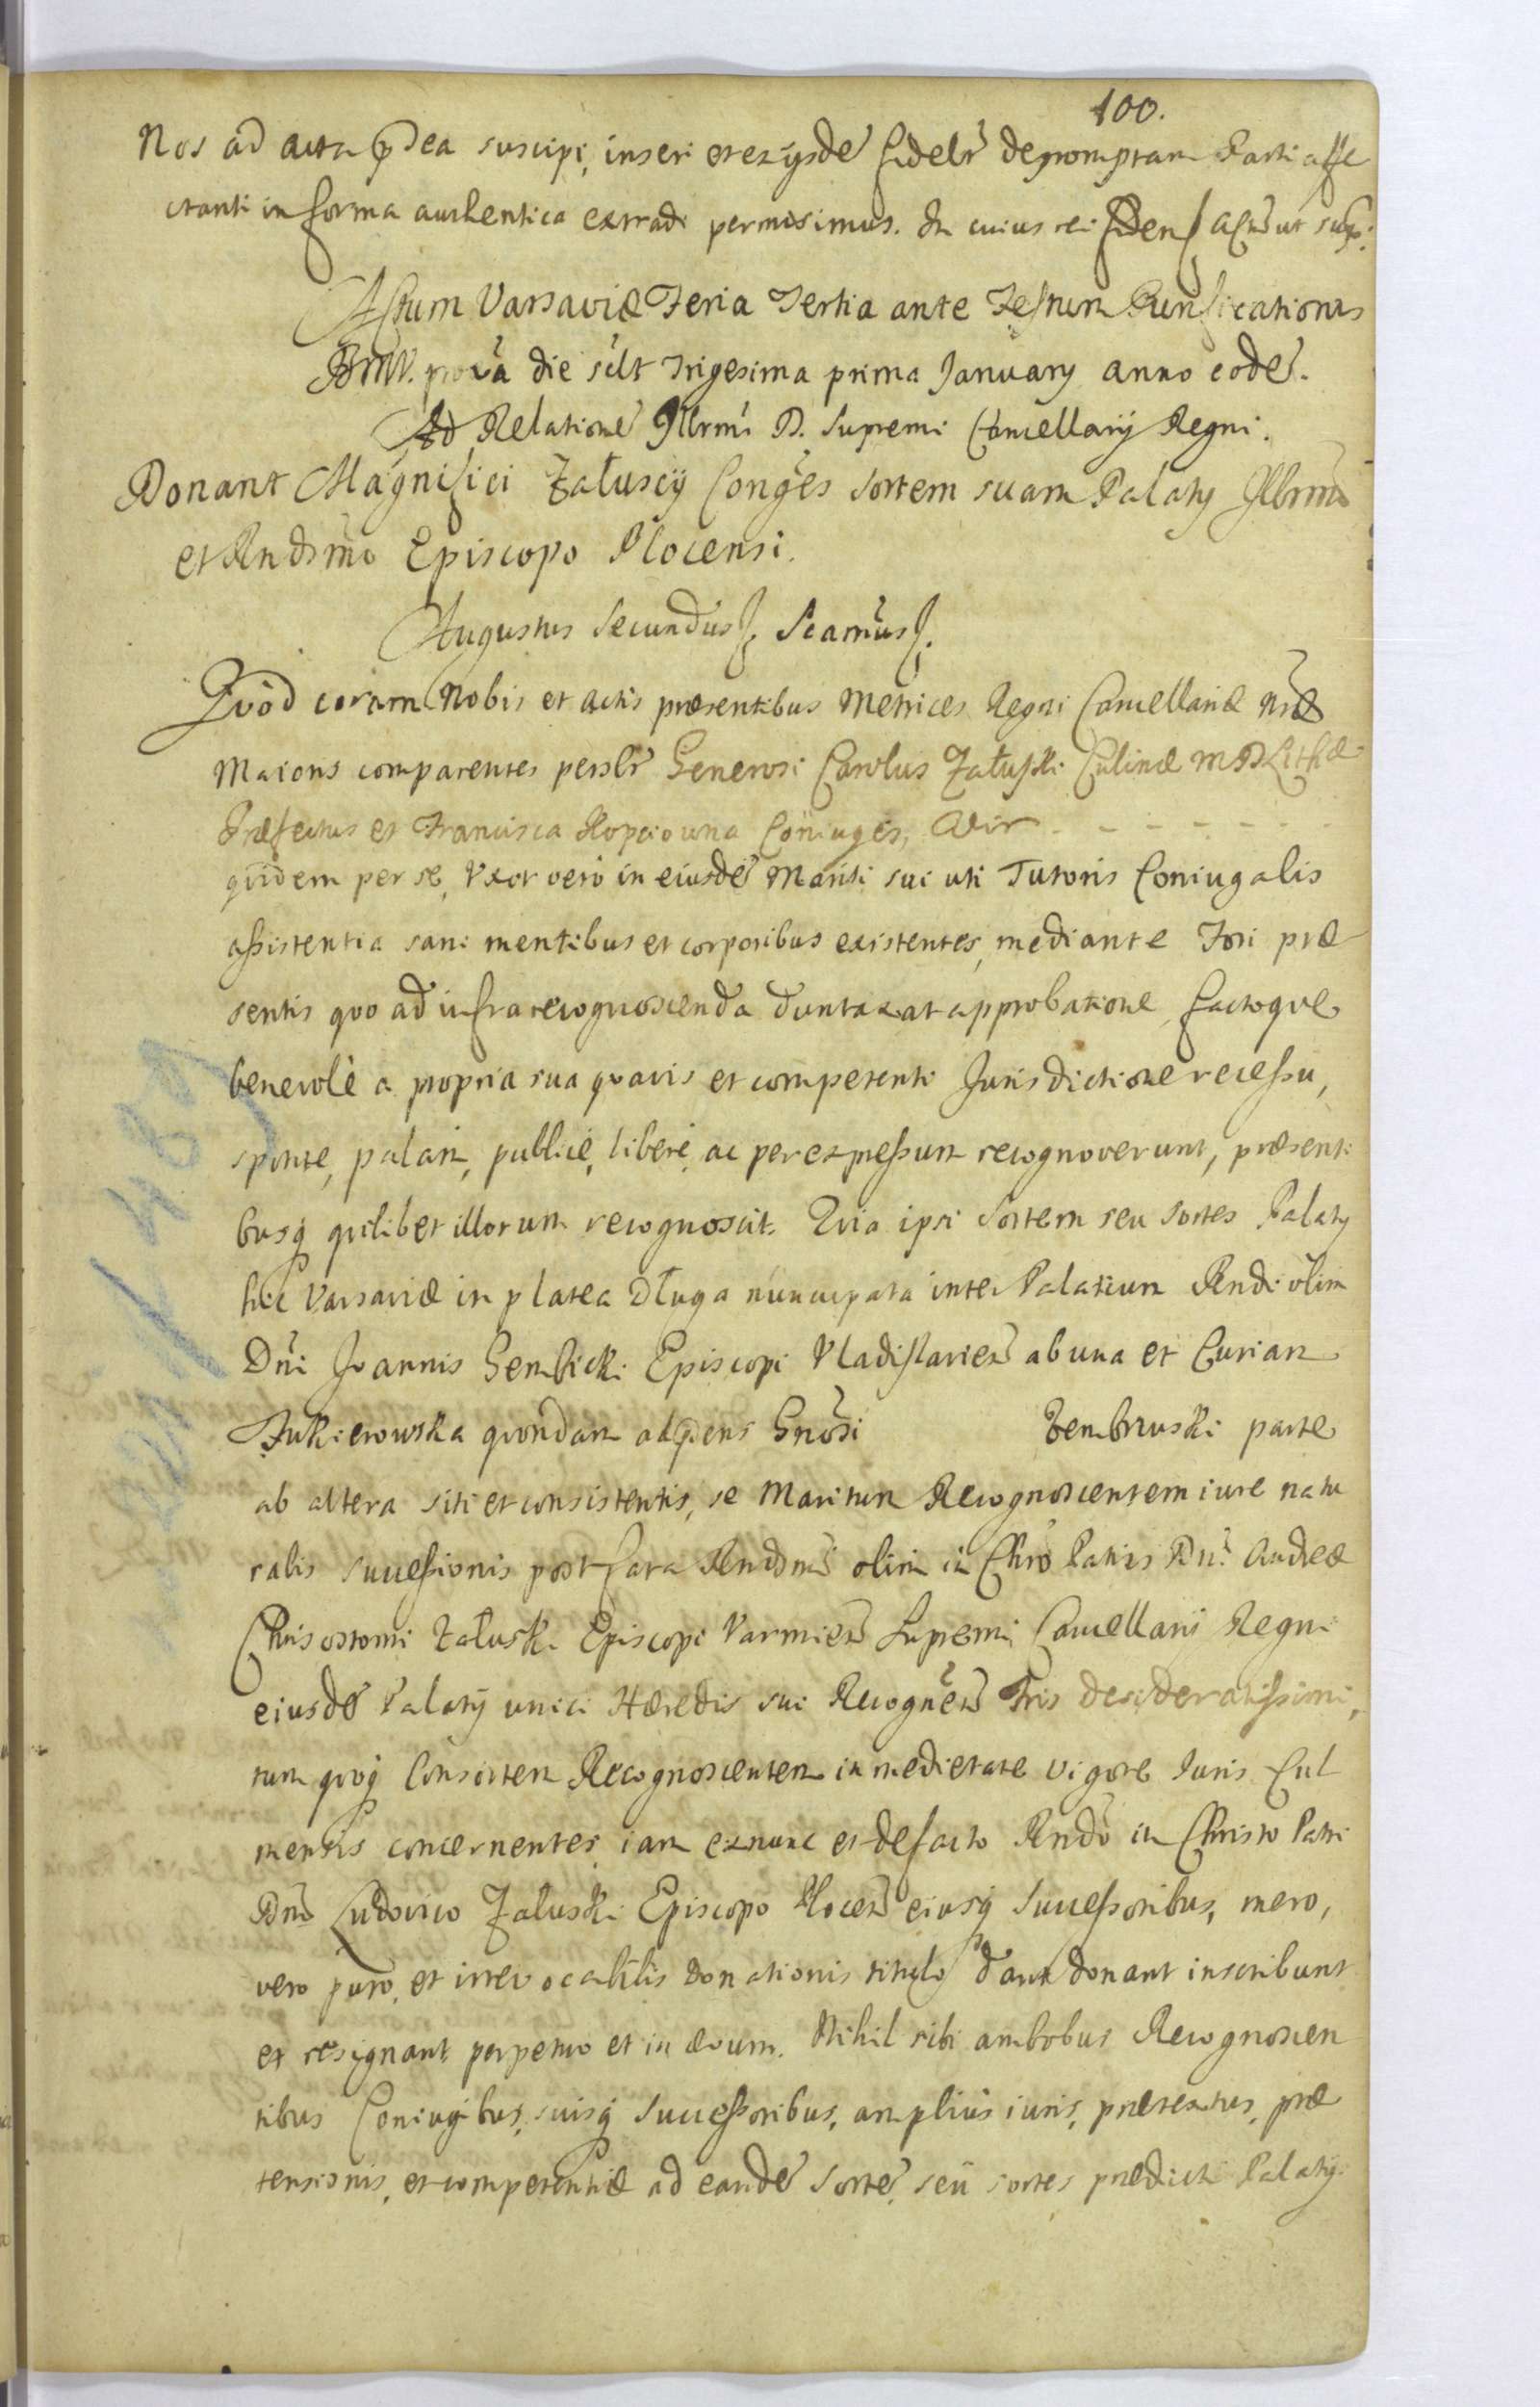 100.
Nos ad acta pndea suscipi, inseri et ex ijsde fideltr depromptam Parti affe
ctanti in forma authentica extradi permisimus. In cuius rei fidem Actu ut supr:
Actum Varsaviæ Feria Tertia ante Festum Purificationis
BMV. die silt Trigesima prima January anno eode.
Ad Relatione Illrmi D. Supremi Cancellarij Regni.
Donant Magnifici Załuscij Conges Sortem suam Palatij Illrmo
et Rndsmo Episcopo Plocensi.
Augustus Secundus Scamus
Quod coram Nobis et actis præsentibus Metrices Regni Cancellariæ Nræ
Maioris comparentes persltr Generosi Carolus Załuski Culinæ M D Lithæ
Præfectus et Francisca Kopciowna Coniuges, Vir - - - - - - -
quidem per se, Uxor vero in eiusde Mariti sui uti Tutoris Coniugalis
assistentia sani mentibus et corporibus existentes, mediante Fori præ
sentis quo ad infra recognoscenda duntaxat approbatione, factoque
benevole a propria sua quavis et competenti Jurisdictione recessu,
sponte, palam, publice, libere, ac per expressum recognoverunt, præsenti
busq quilibet illorum recognoscit. Quia ipsi Sortem seu Sortes Palatij
hic Varsaviæ in platea Długa nuncupata inter Palatium Rndi olim
Dni Joannis Gembicki Episcopi Vladislavien ab una et Curiam
Żukierowska quondam ad pens Gnosi Zembrzuski parte
ab altera siti et consistentis, se Maritum Recognoscentem iure natu
ralis successionis post fata Rndsmi olim in Chro Patris Dni Andreæ
Chrisostomi Załuski Episcopi Varmien Supremi Cancellarij Regni
eiusde Palatij unici Hæredis sui Recognen Fris desideratissimi,
tum quoq Consortem Recognoscentem in medietate vigore Juris Cul
mensis concernentes, iam ex nunc et de facto Rndo in Christo Patri
Dno Ludovico Załuski Episcopo Plocen eiusq Successoribus, mero,
vero puro, et irrevocabilis donationis titulo dant donant inscribunt
et resignant perpetuo et in ævum. Nihil sibi ambobus Recognoscen
tibus Coniugibus, suisq Successoribus, amplius iuris, prætextus, præ
tensionis, et competentiæ ad eande Sorte, seu sortes prædicti Palatij